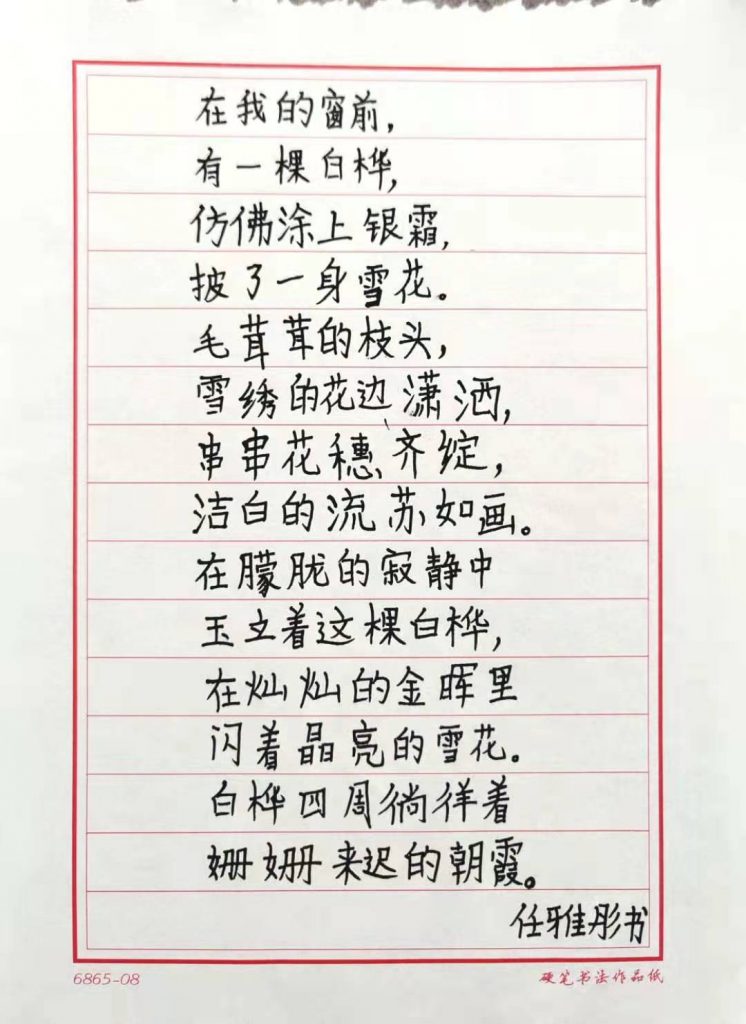 在我的窗前，
有一棵白桦，
仿佛涂上银霜，
披了一身雪花。
毛茸茸的枝头，
雪绣的花边潇洒，
串串花穗齐绽，
洁白的流苏如画。
在朦胧的寂静中
玉立着这棵白桦，
在灿灿的金晖里
闪着晶亮的雪花。
白桦四周徜徉着
姗姗来迟的朝霞。
任雅彤书
6865-08 硬笔书法作品纸